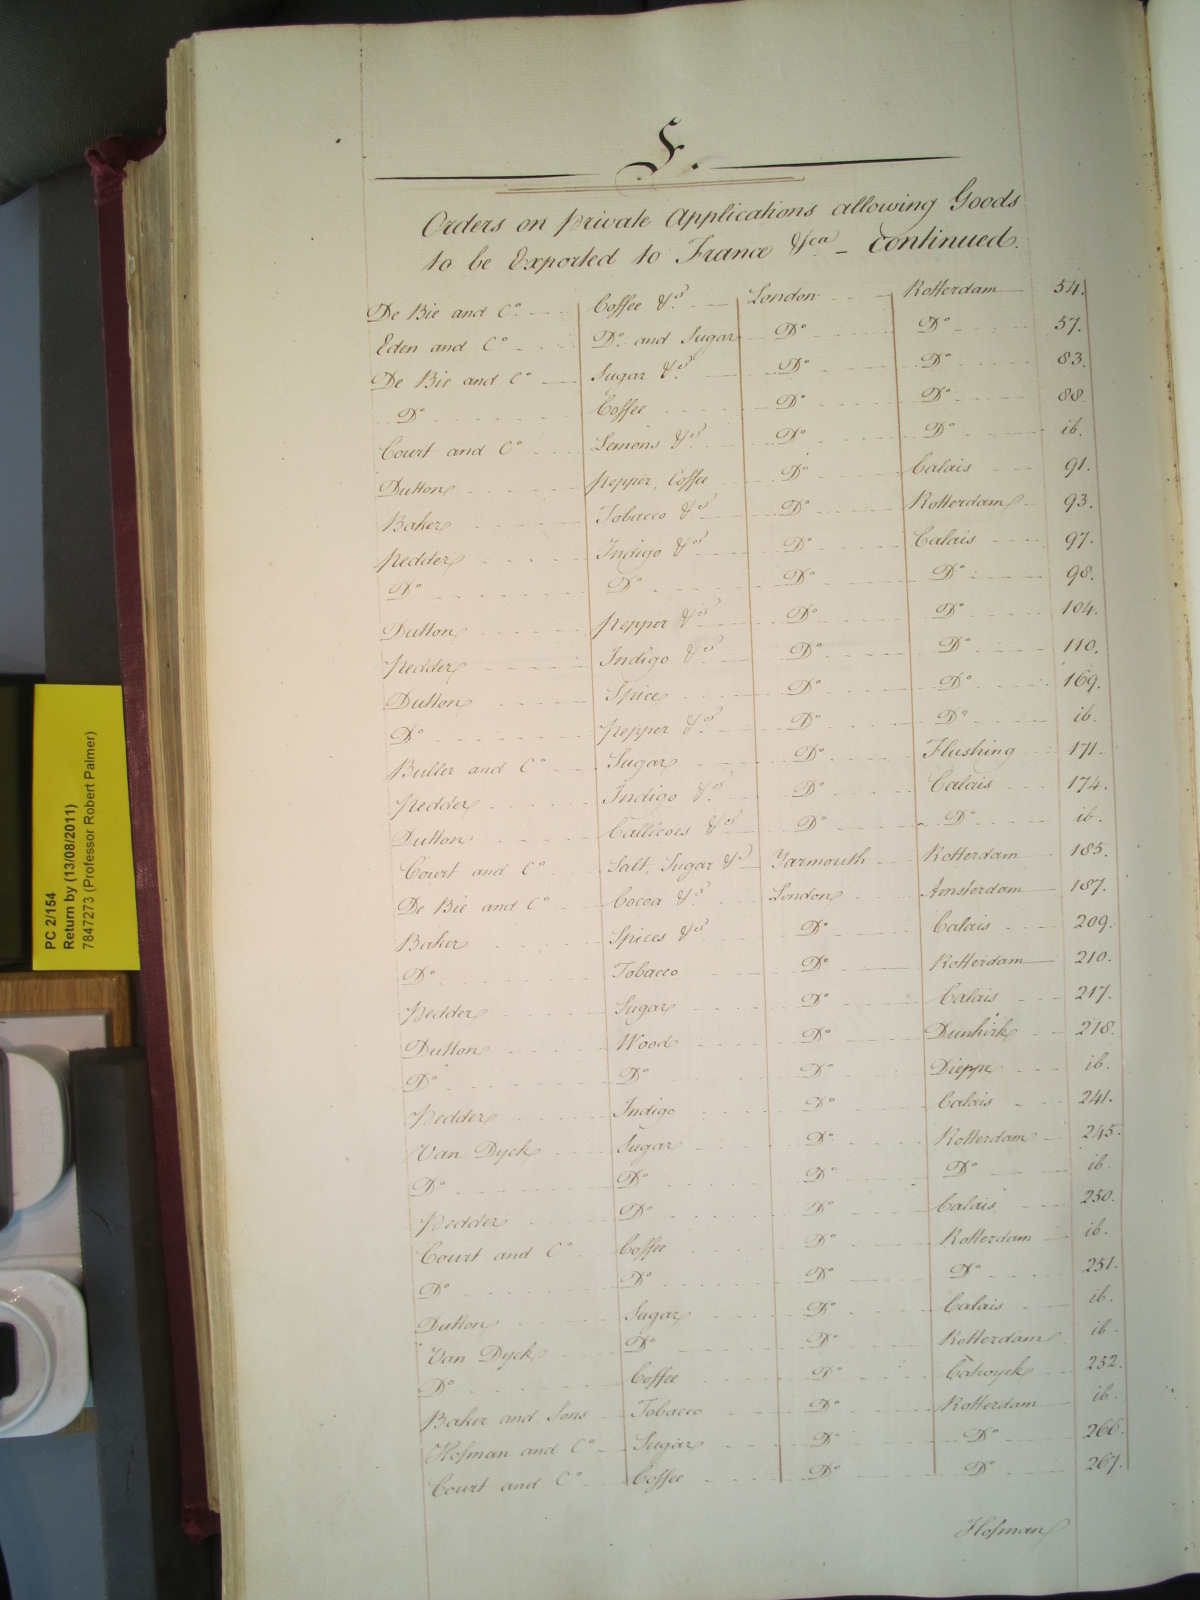 F.
Orders on private Applications allowing Goods
to be Exported to France &ca – continued.
De Bie and Co. Coffee &c. London Rotterdam 54.
Eden and Co. Do. and Sugar Do. Do. 57.
De Bie and Co. Sugar &c. Do. Do. 83.
Do. Coffee Do. Do. 88.
Court and Co. Lemons &c. Do. Do. ib.
Dutton Pepper, Coffee Do. Calais 91.
Baker Tobacco &c. Do. Rotterdam 93.
Pedder Indigo &c. Do. Calais 97.
Do. Do. Do. Do. 98.
Dutton Pepper &c. Do. Do. 104.
Pedder Indigo &c. Do. Do. 110.
Dutton Spice Do. Do. 169.
Do. Pepper &c. Do. Do. ib.
Buller and Co. Sugar Do. Flushing 171.
Pedder Indigo &c. Do. Calais 174.
Dutton Callicoes &c. Do. Do. ib.
Court and Co. Salt, Sugar &c. Yarmouth Rotterdam 185.
De Bie and Co. Cocoa &c. London Amsterdam 187.
Baker Spices &c. Do. Calais 209.
Do. Tobacco Do. Rotterdam 210.
Pedder Sugar Do. Calais 217.
Dutton Wood Do. Dunkirk 218.
Do. Do. Do. Dieppe ib.
Pedder Indigo Do. Calais 241.
Van Dyck Sugar Do. Rotterdam 245.
Do. Do. Do. Do. ib.
Pedder Do. Do. Calais 250.
Court and Co. Coffee Do. Rotterdam ib.
Do. Do. Do. Do. 251.
Dutton Sugar Do. Calais ib.
Van Dyck Do. Do. Rotterdam ib.
Do. Coffee Do. Catwyck 252.
Baker and Sons Tobacco Do. Rotterdam ib.
Hofman and Co. Sugar Do. Do. 266.
Court and Co. Coffee Do. Do. 267.
Hofman
PC 2/154
Return by (13/08/2011)
7847273 (Professor Robert Palmer)